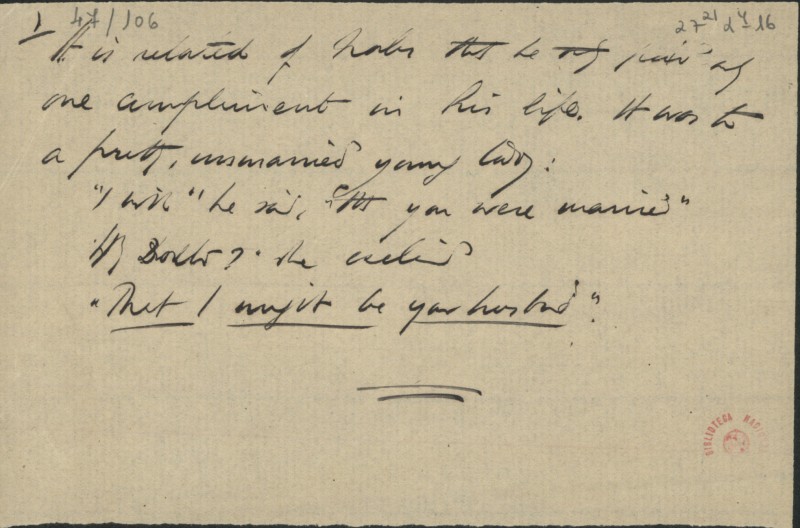 1 47/106
27 21 2 4 16
It is related of that he only paid only
one compliment in his life. It was to
a pretty, unmarried young lady:
"I wish" he said, "that you were married"
Why Doctor? she
"That I might be your husband".
BIBLIOTECA NACIONAL